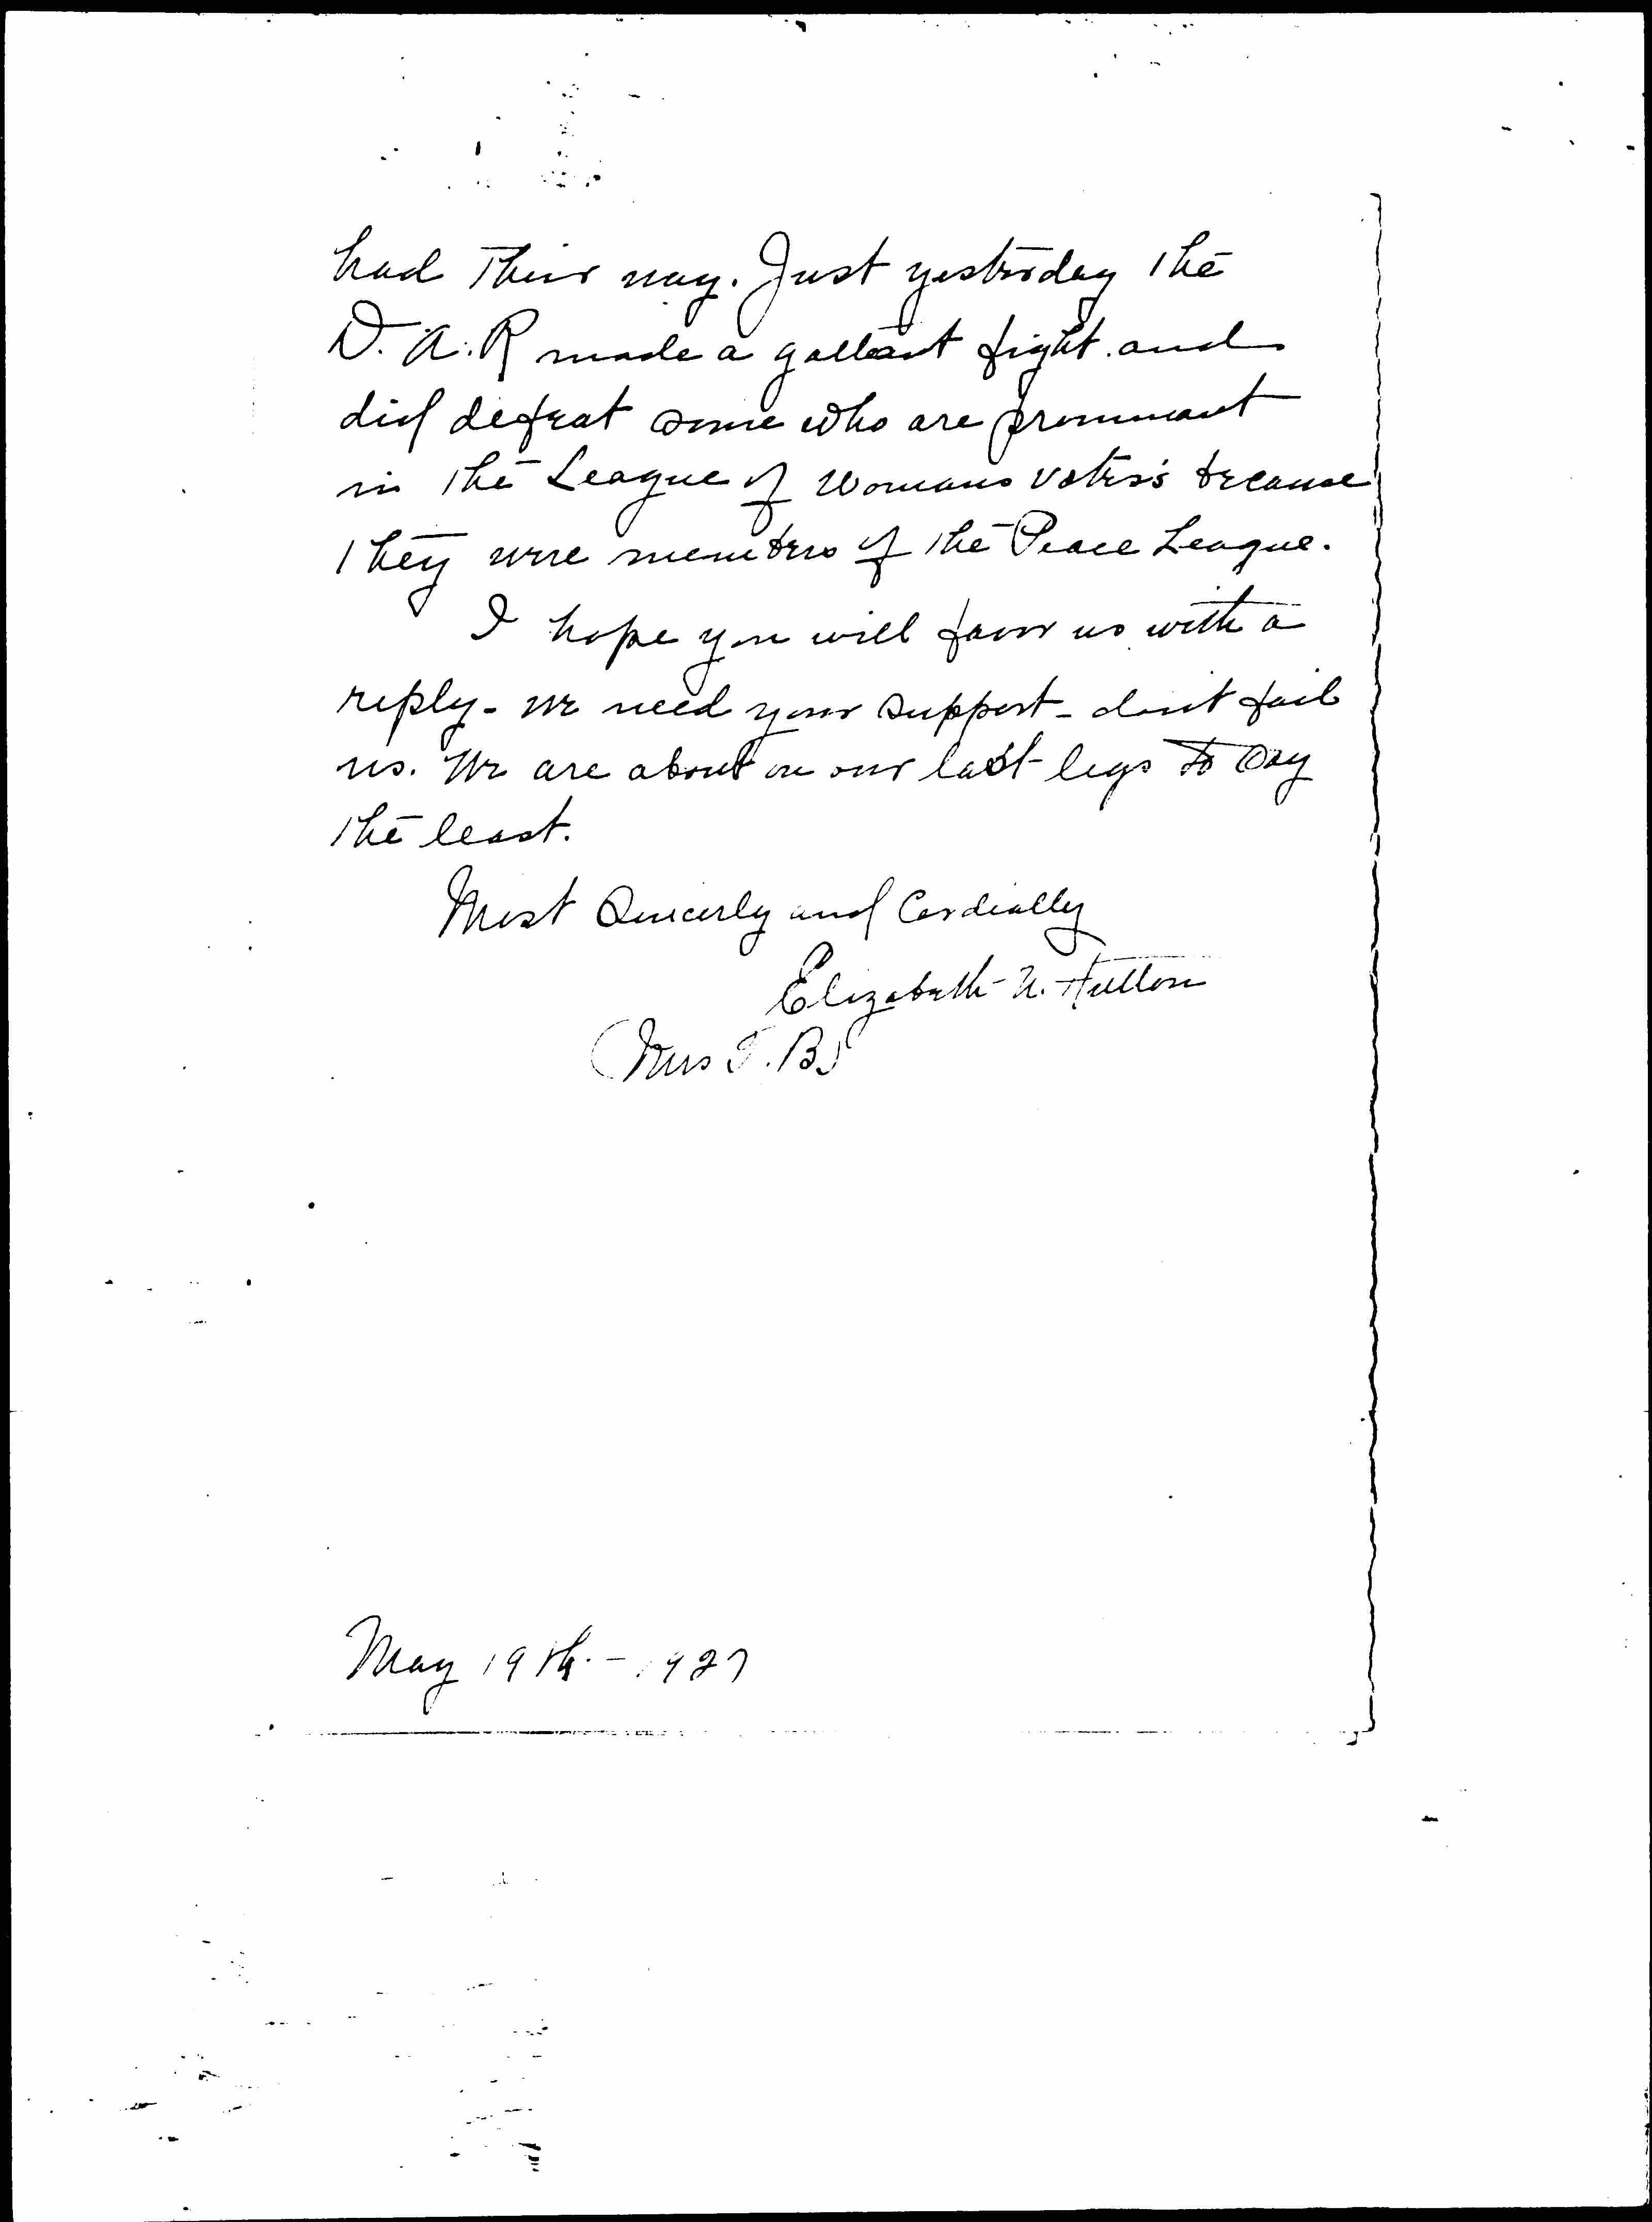 had their way. Just yesterday the
D. A. R made a gallant fight and
did defeat some who are prominant
in the League of Womans Voters's because
they were members of the Peace League.
I hope you will favor us with a
reply - We need your support - don't fail
us. We are about on our last legs to say
the least.
Most Sincerly and Cordially
Elizabeth N.
(Mrs T. B.)
May 19th. - 1927